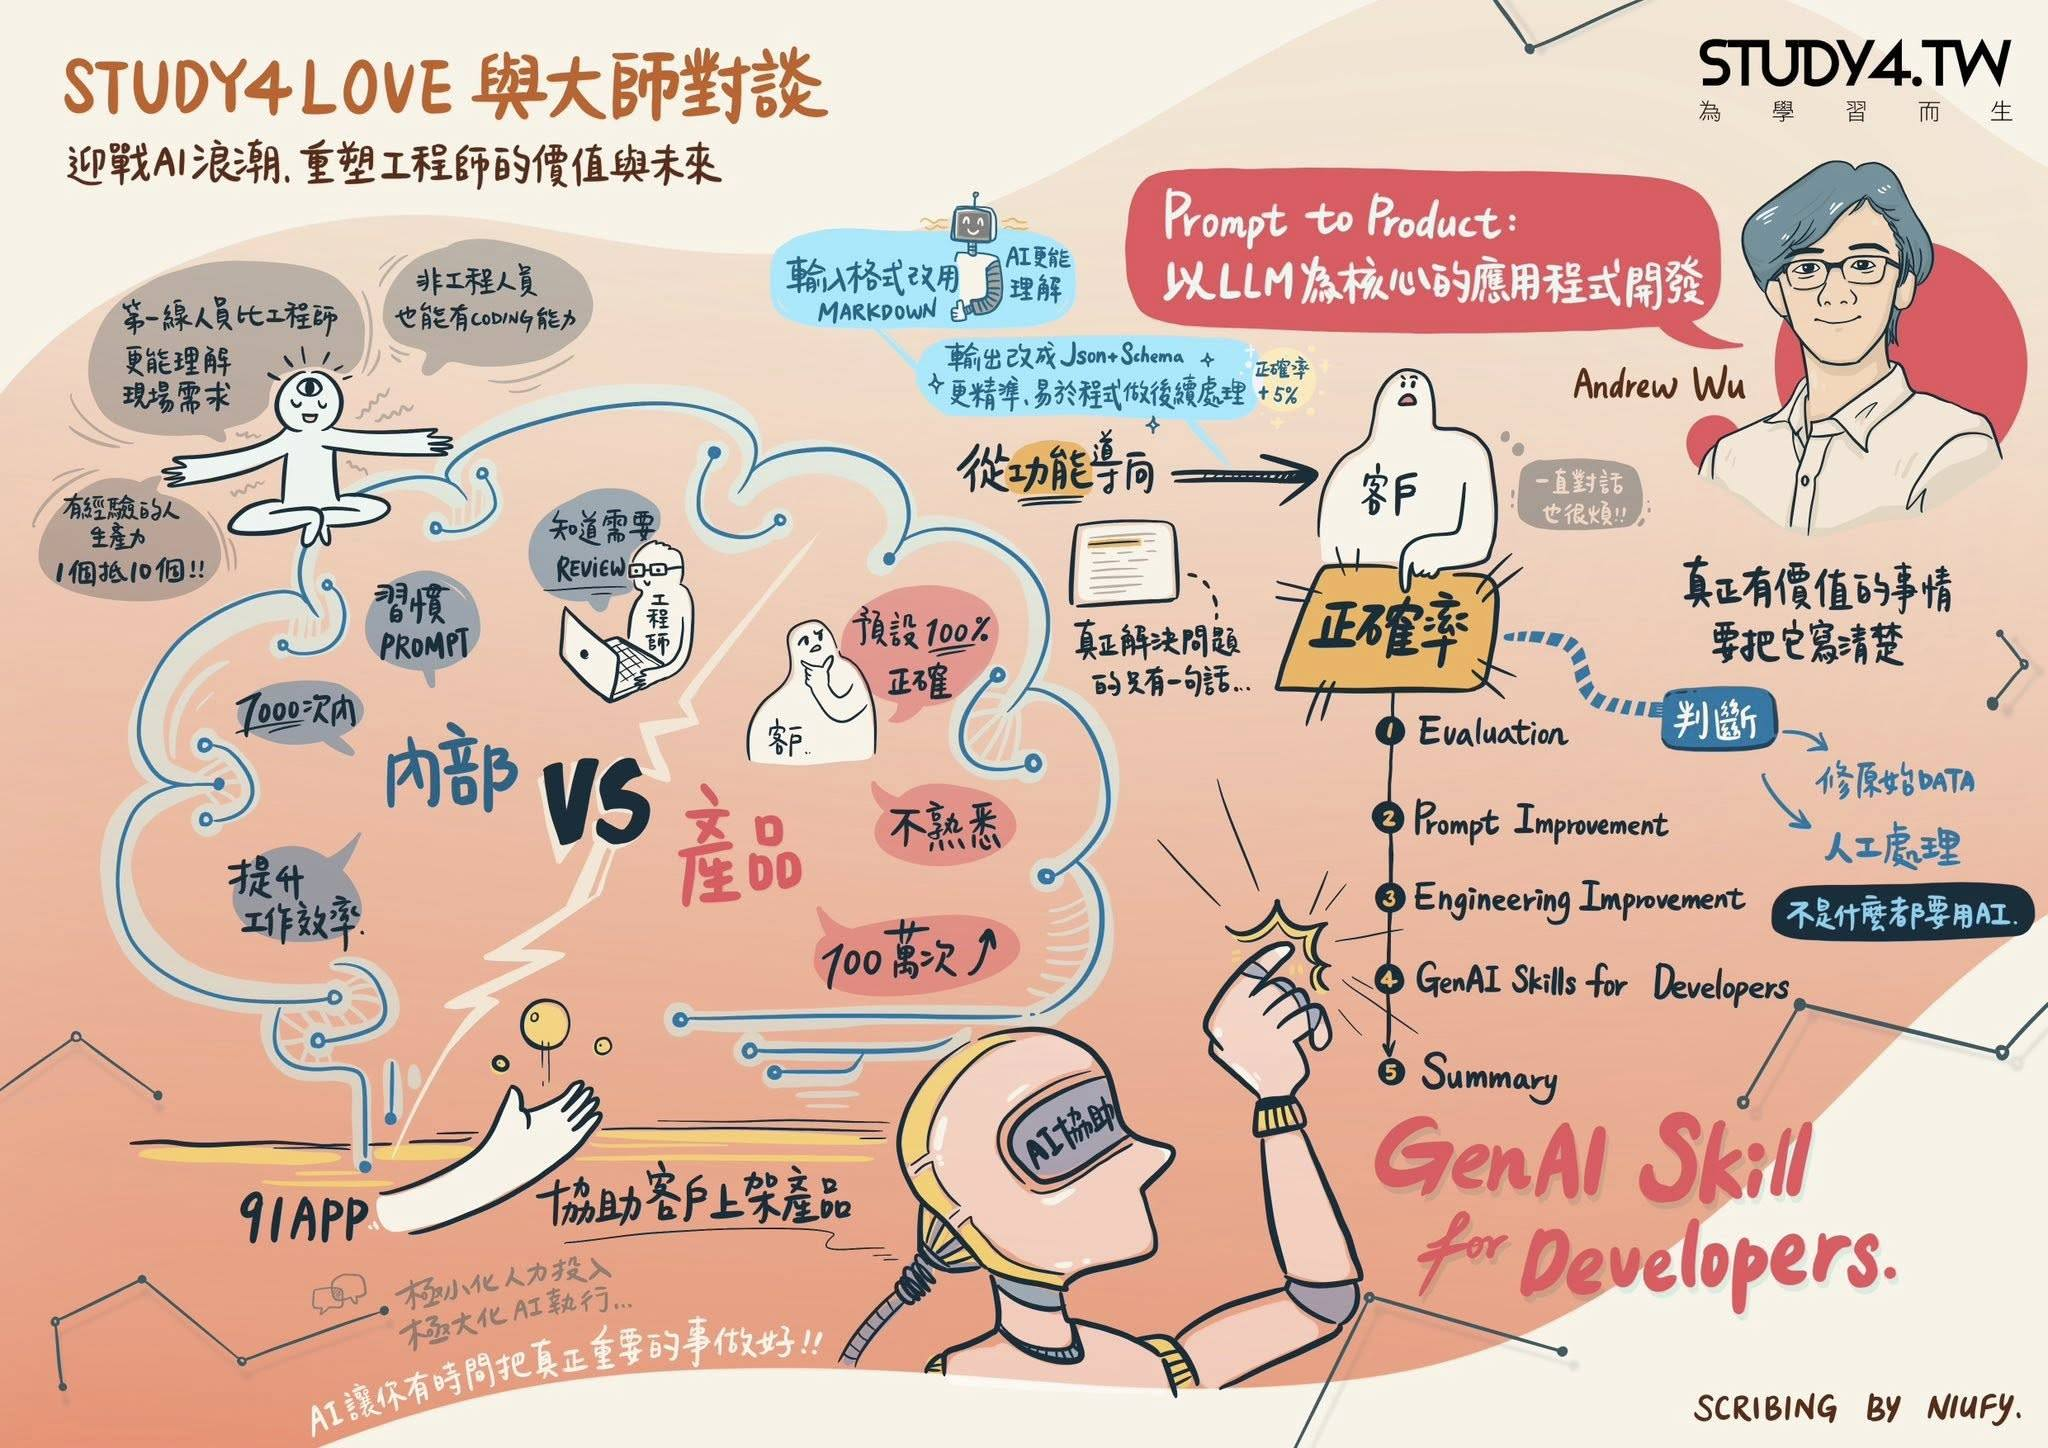 STUDY4LOVE 與大師對談
迎戰AI浪潮. 重塑工程師的價值與未來
STUDY4.TW
為學習而生
Prompt to Product:
以LLM為核心的應用程式開發
Andrew Wu
第一線人員比工程師
更能理解
現場需求
非工程人員
也能有CODING能力
有經驗的人
生產力
1個抵10個!!
習慣
PROMPT
知道需要
REVIEW
工程師
7000次內
提升
工作效率.
內部
VS
產品
客戶..
預設100%
正確
不熟悉
100萬次
輸入格式改用
MARKDOWN
AI更能
理解
輸出改成Json+Schema
更精準、易於程式做後續處理
正確率
+5%
從功能導向
客戶
一直對話
也很煩!!
真正解決問題
的只有一句話...
正確率
真正有價值的事情
要把它寫清楚
判斷
修原始DATA
人工處理
不是什麼都要用AI.
1 Evaluation
2 Prompt Improvement
3 Engineering Improvement
4 GenAI Skills for Developers
5 Summary
91APP
協助客戶上架產品
AI協助
極小化人力投入
極大化AI執行...
AI讓你有時間把真正重要的事做好!!
GenAI Skill
for Developers.
SCRIBING BY NIUFY.